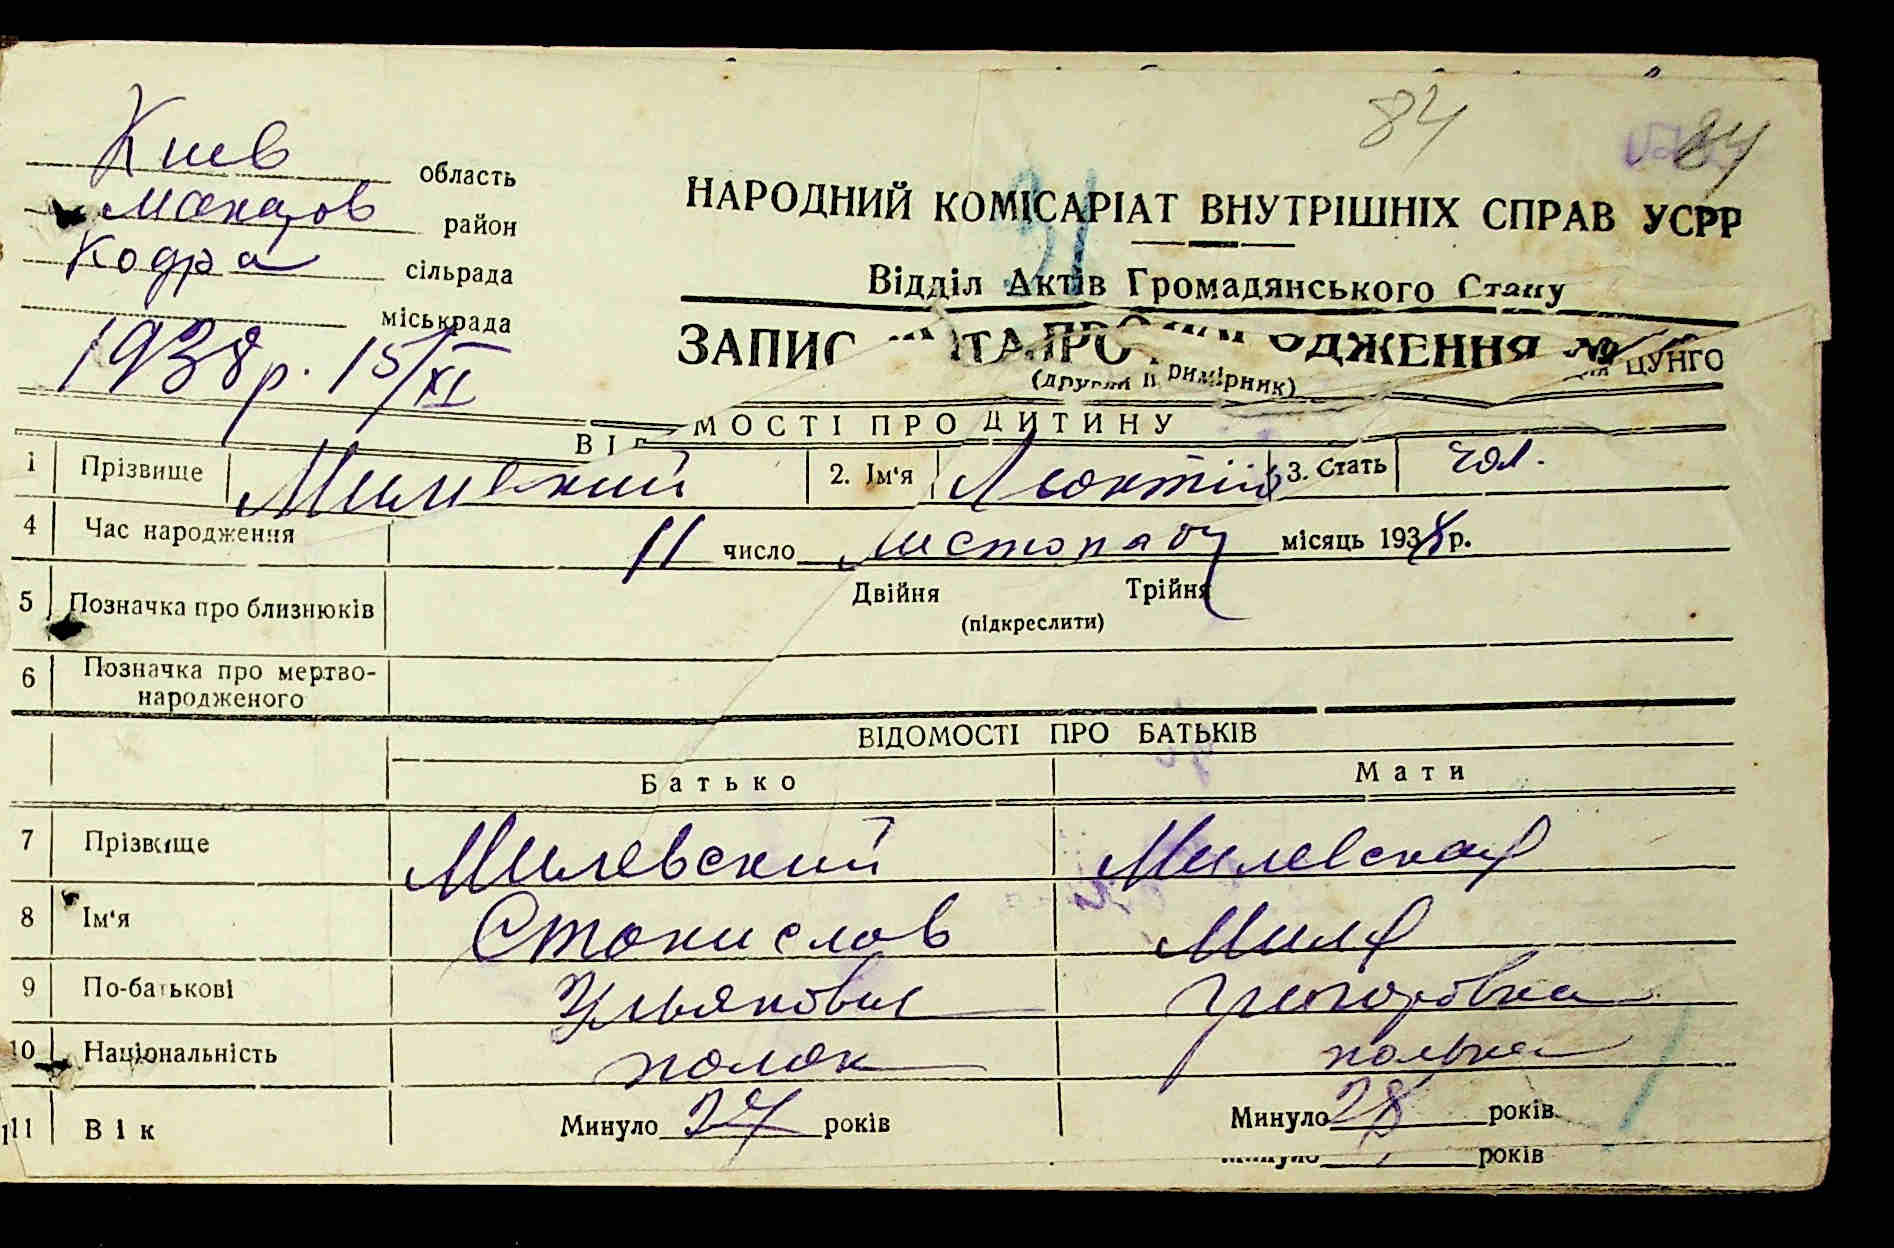 84
84
Киев область
Макаров район
Кодра сільрада
міськрада
1938 р. 15/XI
31
НАРОДНИЙ КОМІСАРІАТ ВНУТРІШНІХ СПРАВ УСРР
Відділ Актів Громадянського Стану
ЗАПИС ПРО ОДЖЕННЯ №
ЦУНГО
(другий примірник)
МОСТІ ПРО ДИТИНУ
1 Прізвище Милевский 2. Ім'я Леонтій 3. Стать чол.
4 Час народження 11 число листопаду місяць 1938 р.
5 Позначка про близнюків Двійня Трійня
(підкреслити)
6 Позначка про мертво-
народженого
ВІДОМОСТІ ПРО БАТЬКІВ
Батько Мати
7 Прізвище Милевский Милевская
8 Ім'я Станислав Миля
9 По-батькові Ульянович Григоровна
10 Національність поляк полька
11 Вік Минуло 37 років Минуло 28 років
Минуло років